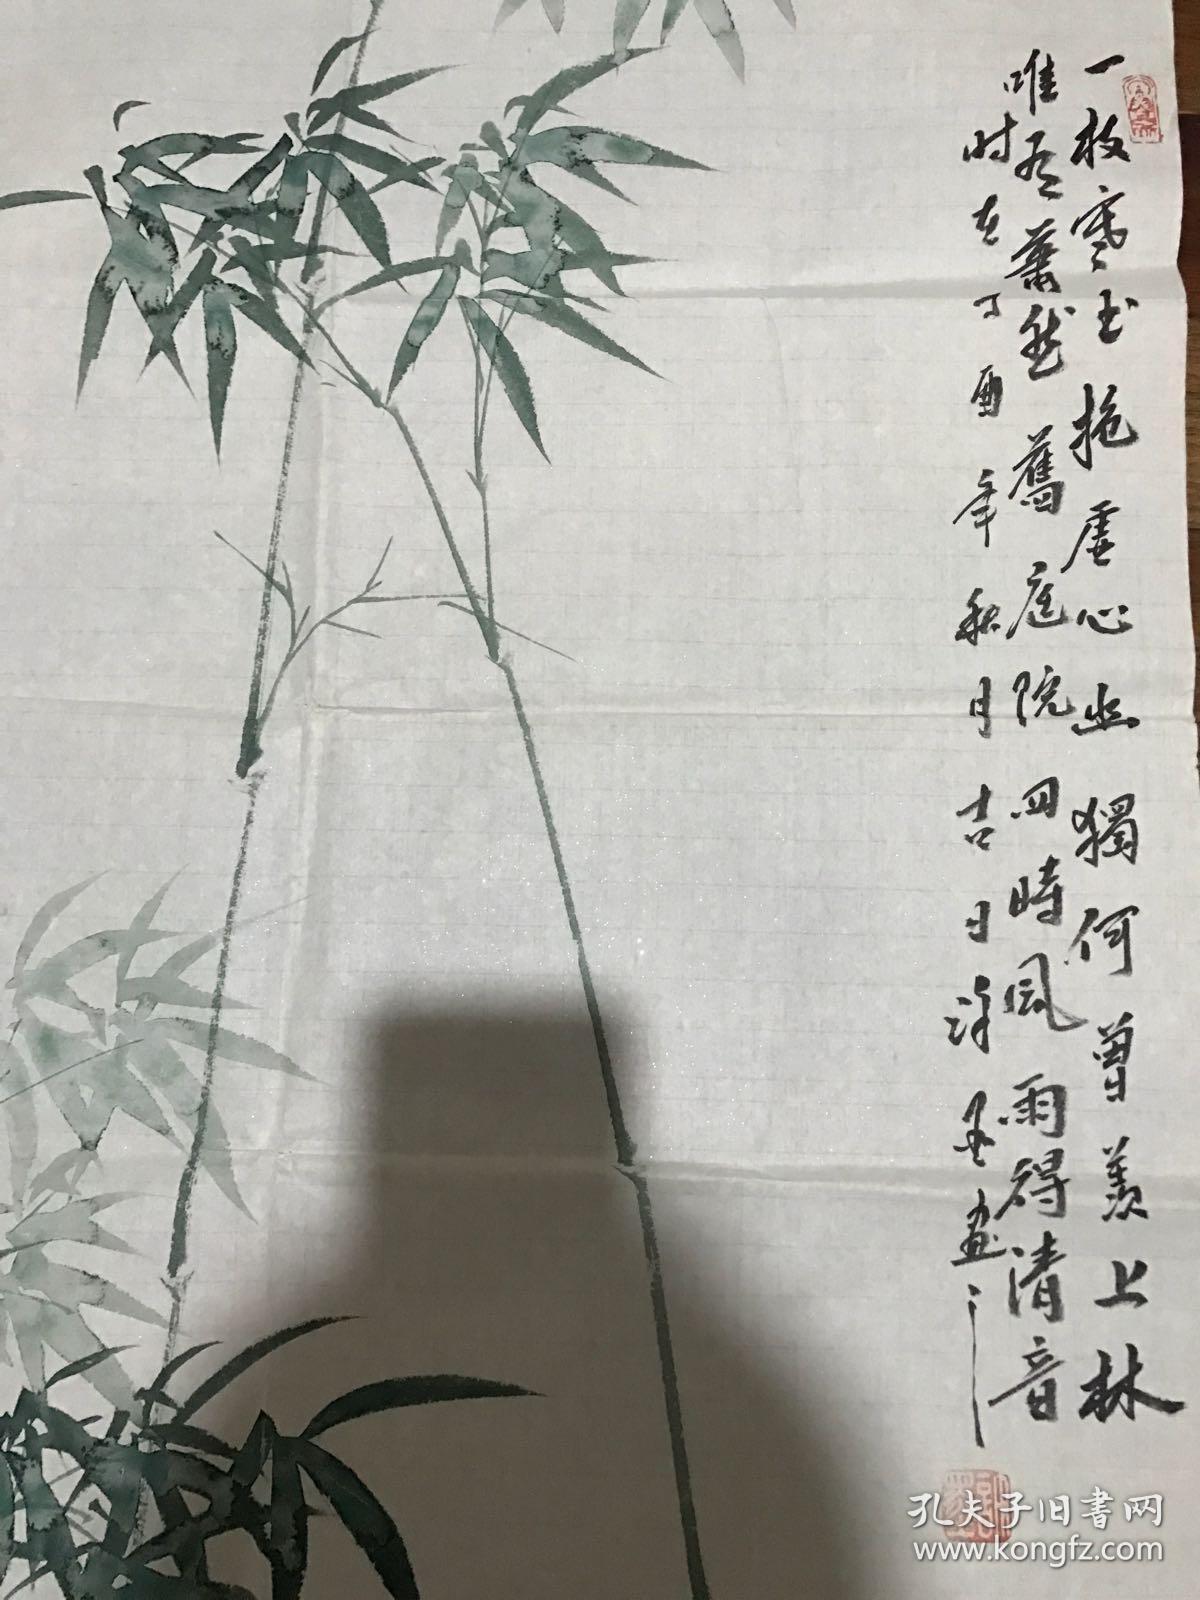 一枝寒玉抱虛心幽獨何曾羨上林
唯有蕭然舊庭院四時風雨得清音
时在丁酉年秋月吉日泽 画
孔夫子旧书网
www.kongfz.com